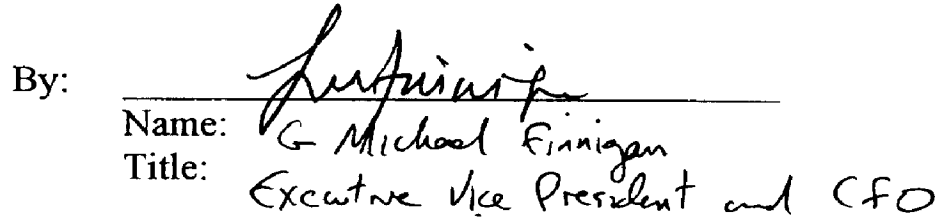 By:
Name: G Michael Finnigan
Title:
Executive Vice President and CFO